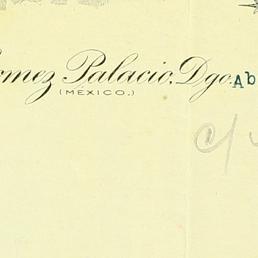 omez Palacio, Dgo. Ab
(MEXICO.)
c/